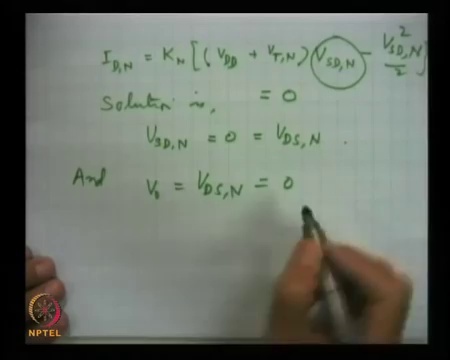 I_{D,N} = K_N [(V_{DD} + V_{T,N}) V_{SD,N} - \frac{V_{SD,N}^2}{2}]
Solution is, = 0
V_{SD,N} = 0 = V_{DS,N} .
And V_0 = V_{DS,N} = 0
NPTEL